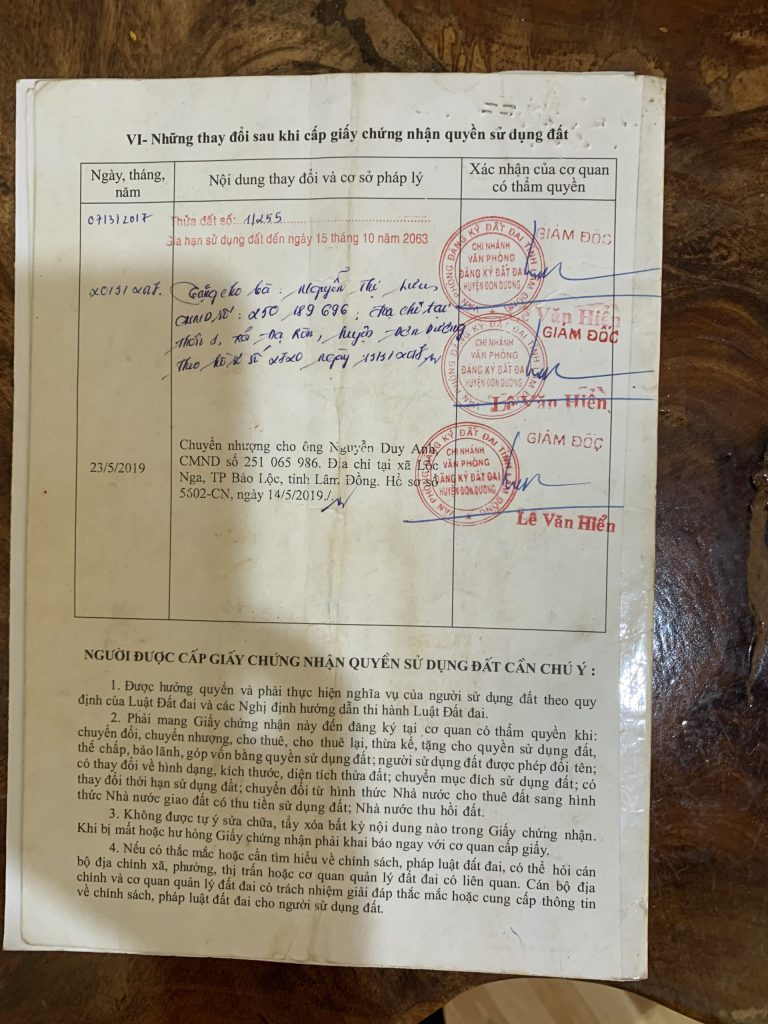 VI- Những thay đổi sau khi cấp giấy chứng nhận quyền sử dụng đất
Ngày, tháng, năm
Nội dung thay đổi và cơ sở pháp lý
Xác nhận của cơ quan có thẩm quyền
07/3/2017
Thửa đất số: 1/255
Gia hạn sử dụng đất đến ngày 15 tháng 10 năm 2063
VĂN PHÒNG ĐĂNG KÝ ĐẤT ĐAI TỈNH LÂM ĐỒNG
CHI NHÁNH
VĂN PHÒNG
ĐĂNG KÝ ĐẤT ĐAI
HUYỆN ĐƠN DƯƠNG
GIÁM ĐỐC
Lê Văn Hiển
Tặng cho bà: Nguyễn Thị
CMND số: 250 189 696; địa chỉ tại
thôn xã huyện Đơn Dương
Theo hồ sơ số ngày
VĂN PHÒNG ĐĂNG KÝ ĐẤT ĐAI TỈNH LÂM ĐỒNG
CHI NHÁNH
VĂN PHÒNG
ĐĂNG KÝ ĐẤT ĐAI
HUYỆN ĐƠN DƯƠNG
GIÁM ĐỐC
Lê Văn Hiển
23/5/2019
Chuyển nhượng cho ông Nguyễn Duy Anh,
CMND số 251 065 986. Địa chỉ tại xã Lộc
Nga, TP Bảo Lộc, tỉnh Lâm Đồng. Hồ sơ số
5602-CN, ngày 14/5/2019./
VĂN PHÒNG ĐĂNG KÝ ĐẤT ĐAI TỈNH LÂM ĐỒNG
CHI NHÁNH
VĂN PHÒNG
ĐĂNG KÝ ĐẤT ĐAI
HUYỆN ĐƠN DƯƠNG
GIÁM ĐỐC
Lê Văn Hiển
NGƯỜI ĐƯỢC CẤP GIẤY CHỨNG NHẬN QUYỀN SỬ DỤNG ĐẤT CẦN CHÚ Ý :
1. Được hưởng quyền và phải thực hiện nghĩa vụ của người sử dụng đất theo quy
định của Luật Đất đai và các Nghị định hướng dẫn thi hành Luật Đất đai.
2. Phải mang Giấy chứng nhận này đến đăng ký tại cơ quan có thẩm quyền khi:
chuyển đổi, chuyển nhượng, cho thuê, cho thuê lại, thừa kế, tặng cho quyền sử dụng đất,
thế chấp, bảo lãnh, góp vốn bằng quyền sử dụng đất; người sử dụng đất được phép đổi tên;
có thay đổi về hình dạng, kích thước, diện tích thửa đất; chuyển mục đích sử dụng đất; có
thay đổi thời hạn sử dụng đất; chuyển đổi từ hình thức Nhà nước cho thuê đất sang hình
thức Nhà nước giao đất có thu tiền sử dụng đất; Nhà nước thu hồi đất.
3. Không được tự ý sửa chữa, tẩy xóa bất kỳ nội dung nào trong Giấy chứng nhận.
Khi bị mất hoặc hư hỏng Giấy chứng nhận phải khai báo ngay với cơ quan cấp giấy.
4. Nếu có thắc mắc hoặc cần tìm hiểu về chính sách, pháp luật đất đai, có thể hỏi cán
bộ địa chính xã, phường, thị trấn hoặc cơ quan quản lý đất đai có liên quan. Cán bộ địa
chính và cơ quan quản lý đất đai có trách nhiệm giải đáp thắc mắc hoặc cung cấp thông tin
về chính sách, pháp luật đất đai cho người sử dụng đất.